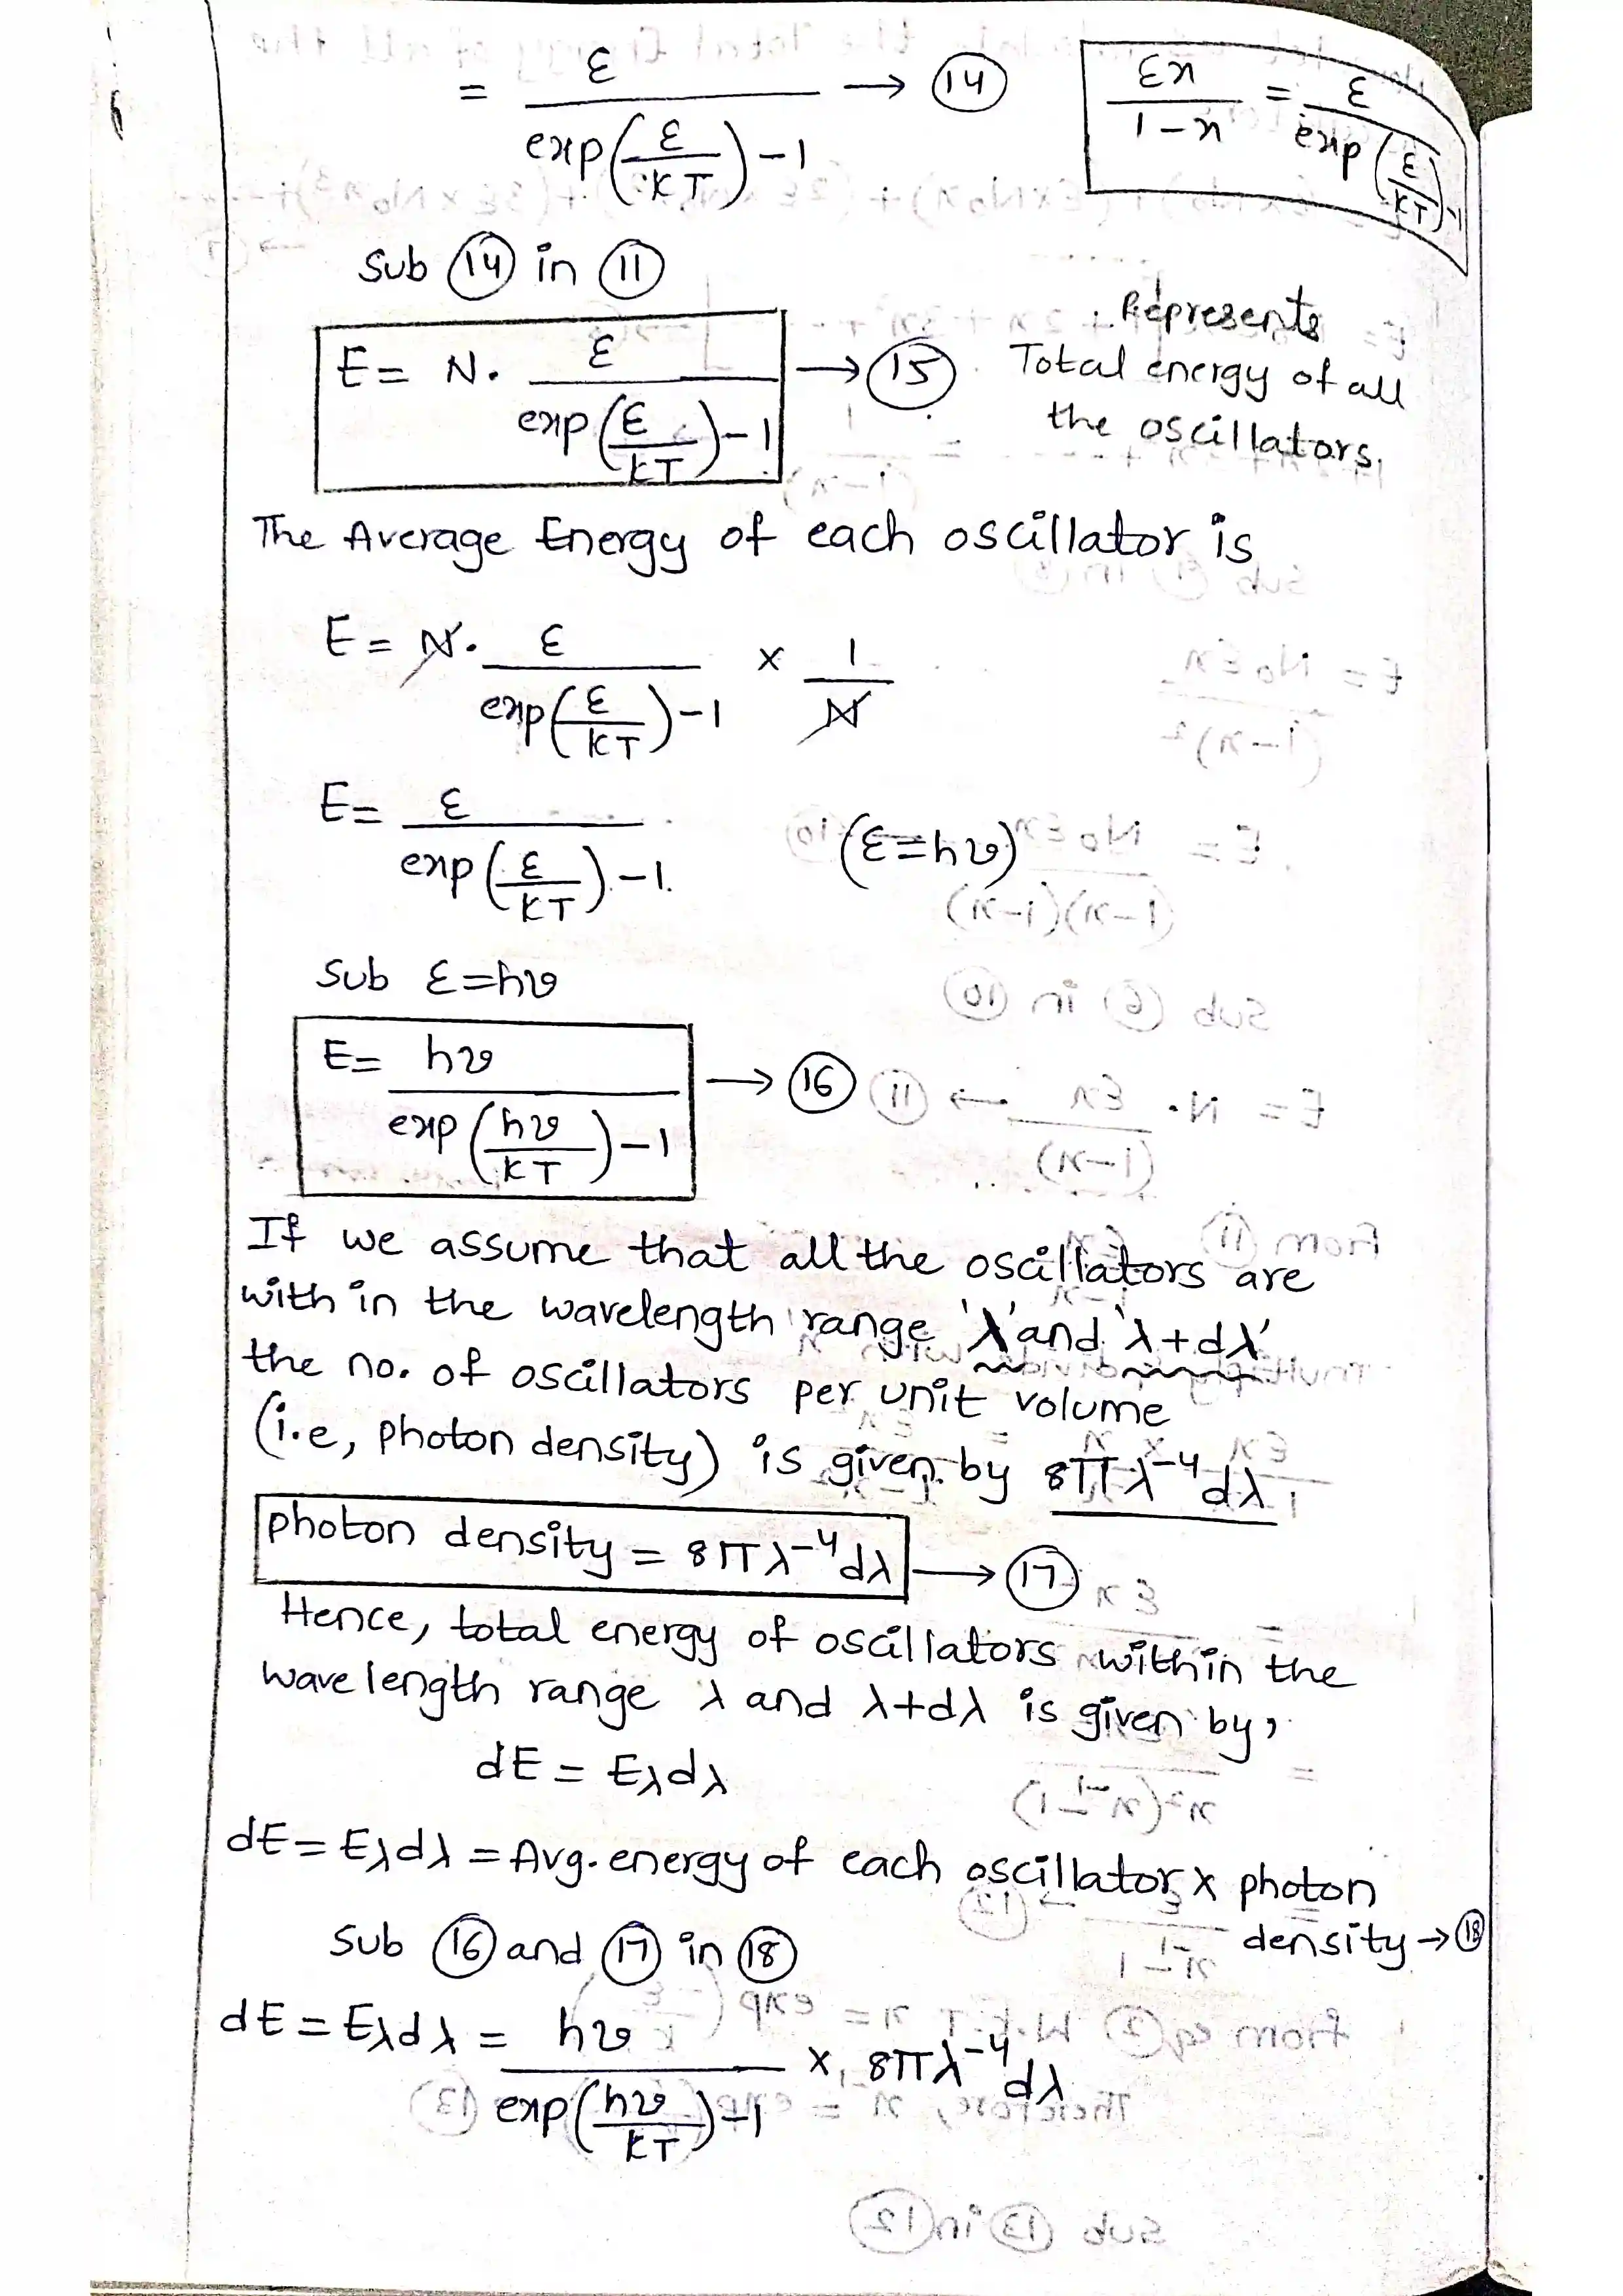 = ε / exp(ε/KT) - 1 → (14)
εx / 1-x = ε / exp(ε/KT) - 1
Sub (14) in (11)
E = N. ε / exp(ε/KT) - 1 → (15)
Represents
Total energy of all
the oscillators.
The Average Energy of each oscillator is
E = N. ε / exp(ε/KT) - 1 × 1/N
E = ε / exp(ε/KT) - 1. (ε = hν)
Sub ε = hν
E = hν / exp(hν/KT) - 1 → (16)
If we assume that all the oscillators are
with in the wavelength range 'λ' and 'λ+dλ'
the no. of oscillators per unit volume
(i.e, photon density) is given by 8πλ⁻⁴dλ
photon density = 8πλ⁻⁴dλ → (17)
Hence, total energy of oscillators within the
wavelength range λ and λ+dλ is given by,
dE = Eλdλ
dE = Eλdλ = Avg. energy of each oscillator x photon
density → (18)
Sub (16) and (17) in (18)
dE = Eλdλ = hν / exp(hν/KT) - 1 × 8πλ⁻⁴dλ